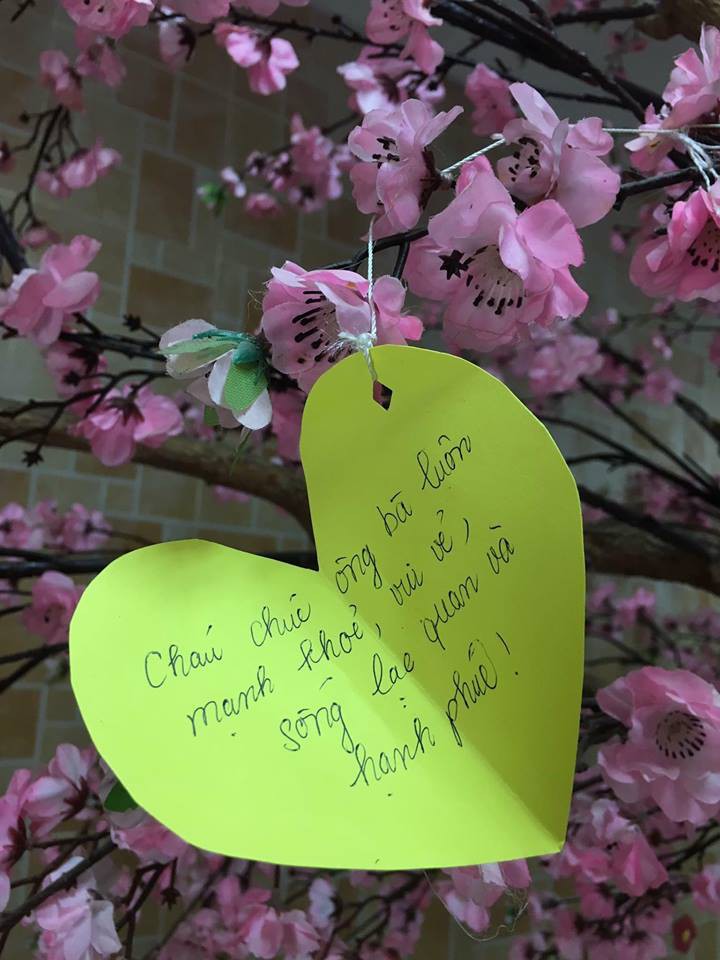 Cháu chúc ông bà luôn
mạnh khoẻ, vui vẻ,
sống lạc quan và
hạnh phúc!